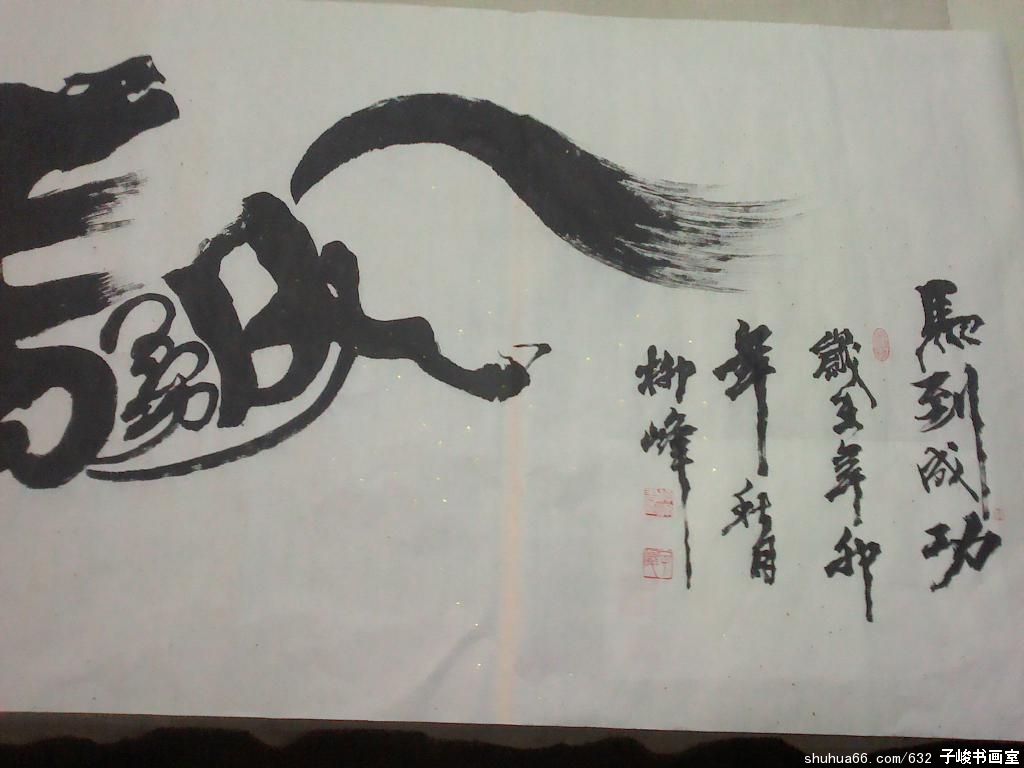 馬到成功
歲在辛卯
年秋月
柳峰
shuhua66.com/632 子峻书画室